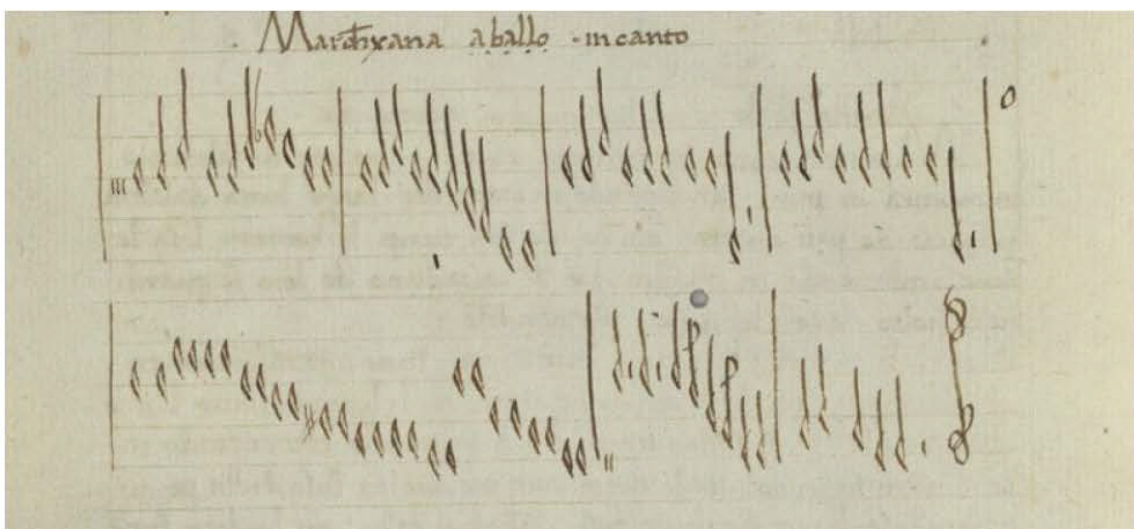 Marchixana aballo -incanto